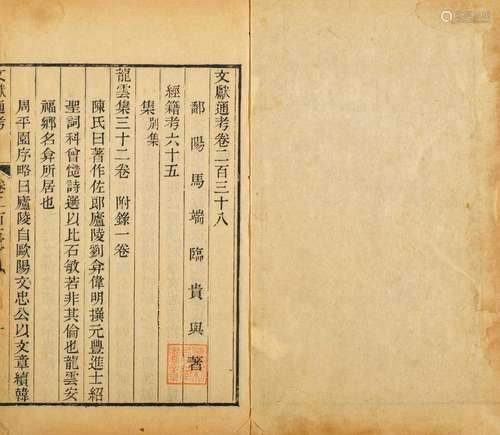 文獻通考卷二百三十八
鄱陽馬端臨貴與著
經籍考六十五
集別集
龍雲集三十二卷 附錄一卷
陳氏曰著作佐郎廬陵劉弇偉明撰元豐進士紹
聖詞科曾慥詩選以比石敏若非其倫也龍雲安
福鄉名弇所居也
周平園序略曰廬陵自歐陽文忠公以文章續韓
文獻通考
卷二百三十八